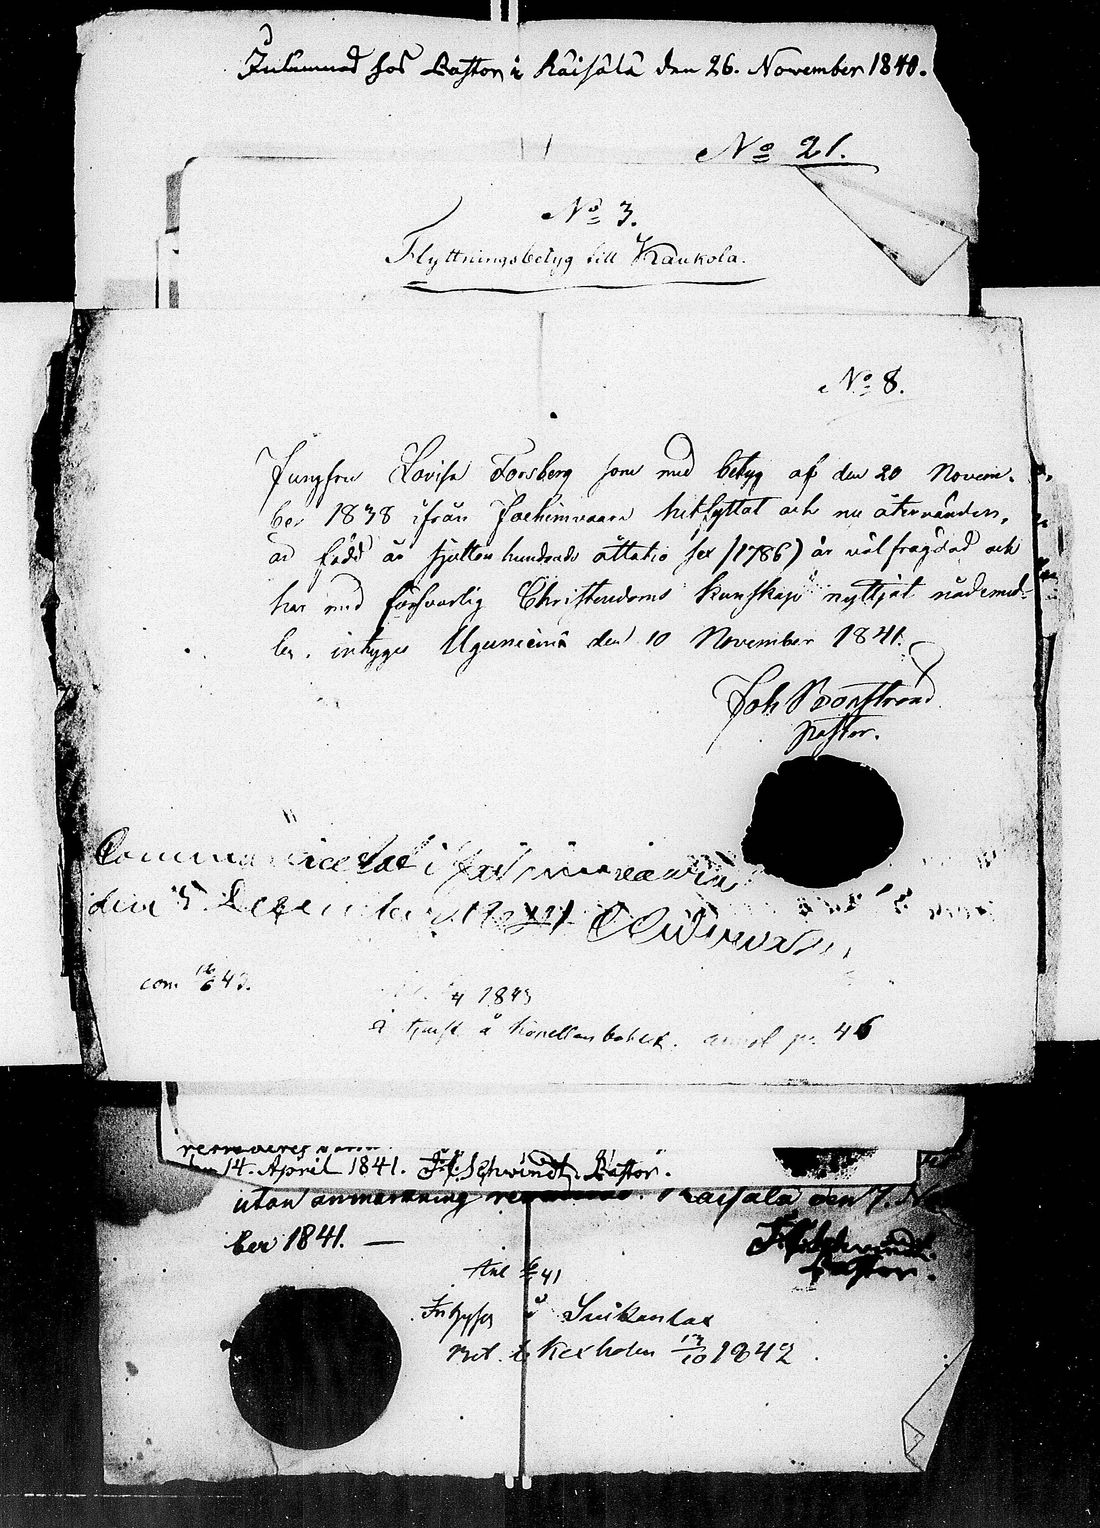 Inlemnad hos Pastorn i Räisälä den 26. November 1840.
No 21.
No 3.
Flyttningsbetyg till Kaukola.
No 8.
Jungfru Lovisa Forsberg som med betyg af den 20 Novem-
ber 1838 ifrån Jochimvaara hitflyttat och nu återvänder,
är född år sjuttonhundrade åttatio sex (1786) är välfrägdad och
har med försvarlig Christendoms kunskap nyttjat nådemed-
len, intygar Uguniemi den 10 November 1841.
Joh Boxstrand
pastor.
den 5 December 1841
com 16/6 43.
4 1843
i tjenst å pr. 46
den 14. April 1841. Schwindt. Pastor.
utan anmärkning Räisälä den 7.
ber 1841. —
Schwindt
Pastor.
41
i Suikanlax
Bet. t. Kexholm 13/10 1842